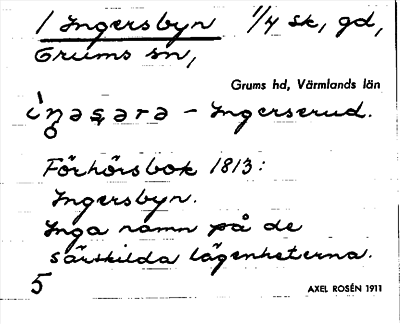 1 Ingersbyn 1/4 sk, gd,
Grums sn,
Grums hd, Värmlands län
- Ingerserud.
Förhörsbok 1813:
Ingersbyn.
Inga namn på de
särskilda lägenheterna.
5
AXEL ROSÉN 1911